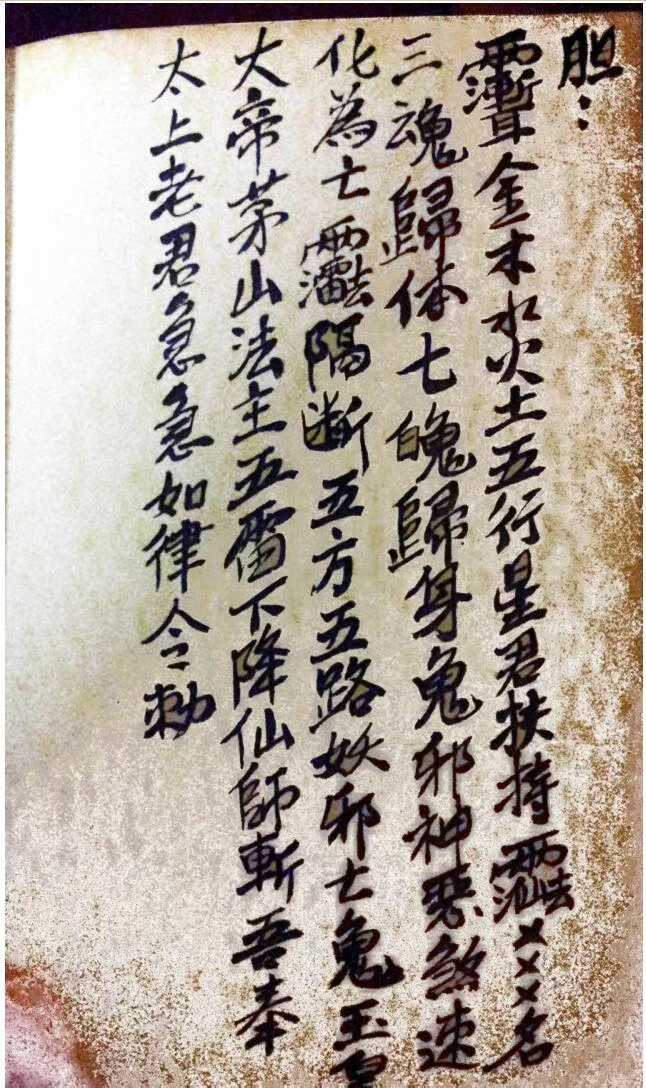 胆：
金木水火土五行星君扶持×××名
三魂歸体七魄歸身鬼邪神惡煞速
化為亡隔断五方五路妖邪亡鬼玉皇
大帝茅山法主五雷下降仙師斬吾奉
太上老君急急如律令勅